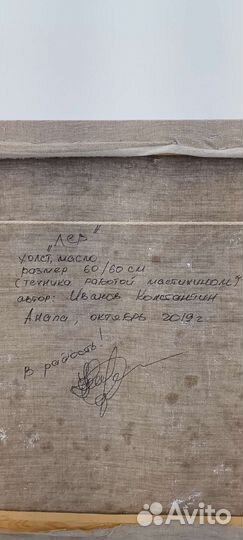 „Лев"
холст, масло
размер 60/60 см
(техника работой мастихином)
автор: Иванов Константин
Анапа, октябрь 2019 г.
В радость!
Avito